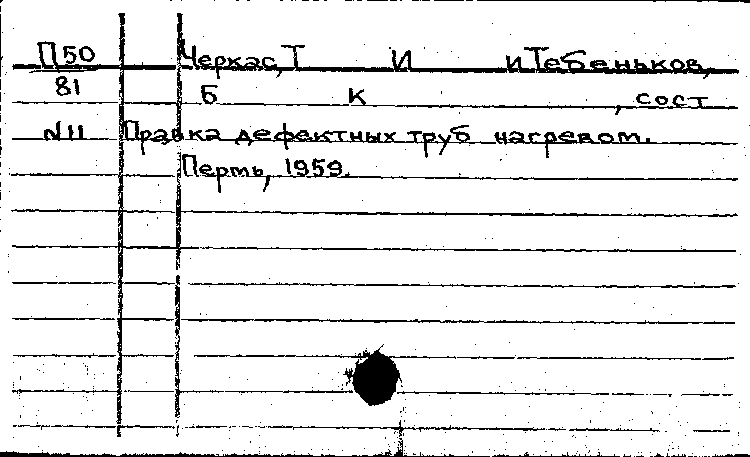 П50 Черкас, Т И и Тебеньков,
81 Б К , сост
N11 Правка дефектных труб нагревом.
Пермь, 1959.